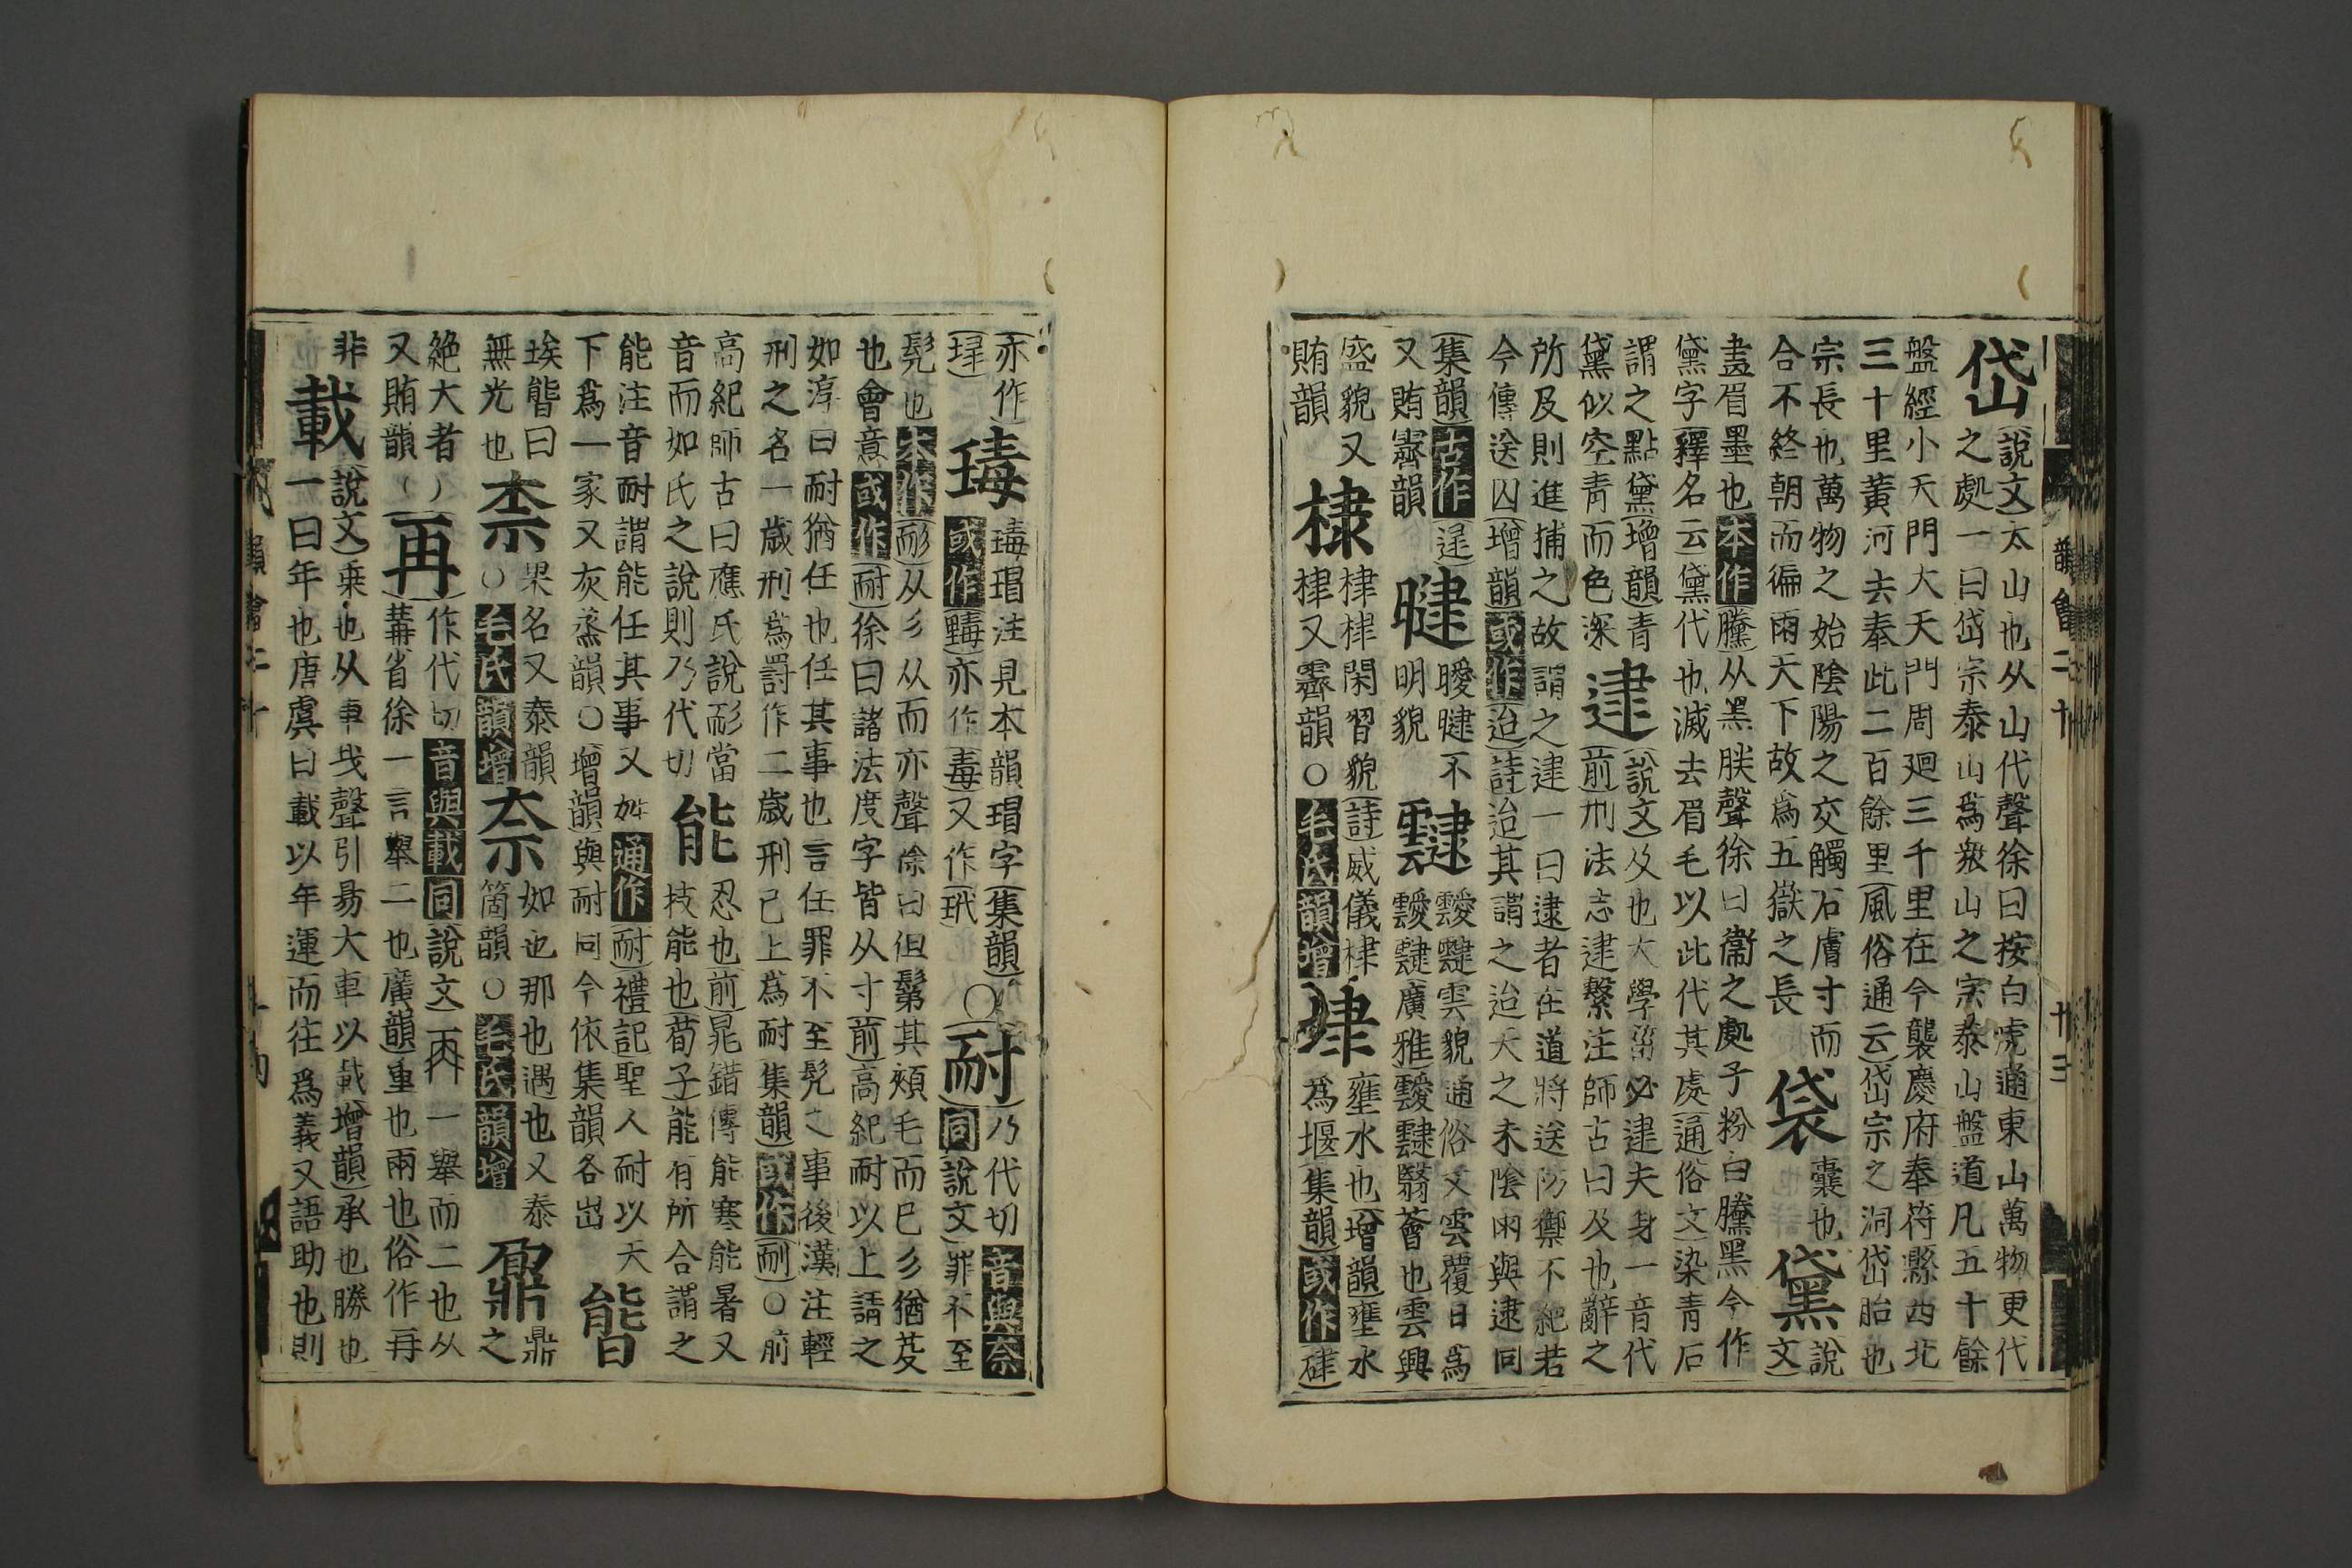 岱
說文太山也从山代聲徐曰按白虎通東山萬物更代
之處一曰岱宗泰山爲衆山之宗泰山盤道凡五十餘
盤經小天門大天門周廻三千里在今襲慶府奉符縣西北
三十里黃河去奉此二百餘里風俗通云岱宗之洞岱胎也
宗長也萬物之始陰陽之交觸石膚寸而
合不終朝而徧雨天下故爲五嶽之長
袋
囊也
黛
說
文
畫眉墨也本作黱从黑朕聲徐曰衞之處子粉白黱黑今作
黛字釋名云黛代也滅去眉毛以此代其處通俗文染青石
謂之點黛增韻青
黛似空青而色深
逮
說文及也大學菑必逮夫身一音代
前刑法志逮繫注師古曰及也辭之
所及則進捕之故謂之逮一曰逮者在道將送防禦不絕若
今傳送囚增韻或作迨詩迨其謂之迨天之未陰雨與逮同
集韻古作
又賄霽韻
曃
曖曃不
明貌
靆
靉靆雲貌通俗文雲覆日爲
靉靆廣雅靉靆翳薈也雲興
盛貌又
賄韻
棣
棣棣閑習貌詩威儀棣
棣又霽韻○毛氏韻增
埭
壅水也增韻壅水
爲堰集韻或作
亦作
瑇
瑇瑁注見本韻瑁字集韻
或作亦作毒又作玳
○耐
乃代切音與奈
同說文罪不至
髡也本作耏从彡从而亦聲徐曰但鬄其頰毛而已彡猶芟
也會意或作耐徐曰諸法度字皆从寸前高紀耐以上請之
如淳曰耐猶任也任其事也言任罪不至髡之事後漢注輕
刑之名一歲刑爲罰作二歲刑已上爲耐集韻或作耏○前
高紀師古曰應氏說耏當
音而如氏之說則乃代切
能
忍也前晁錯傳能寒能暑又
技能也荀子能有所合謂之
能注音耐謂能任其事又姓通作耐禮記聖人耐以天
下爲一家又灰蒸韻○增韻與耐同今依集韻各出
䏻
埃䏻曰
無光也
柰
果名又泰韻
○毛氏韻增
奈
如也那也遇也又泰
箇韻○毛氏韻增
鼐
鼎
之
絕大者
又賄韻
再
作代切音與載同說文再一舉而二也从
冓省徐一言舉二也廣韻重也兩也俗作再
非
載
說文乘也从車𢦏聲引易大車以載增韻承也勝也
一曰年也唐虞曰載以年運而往爲義又語助也則
韻會二十
廿三